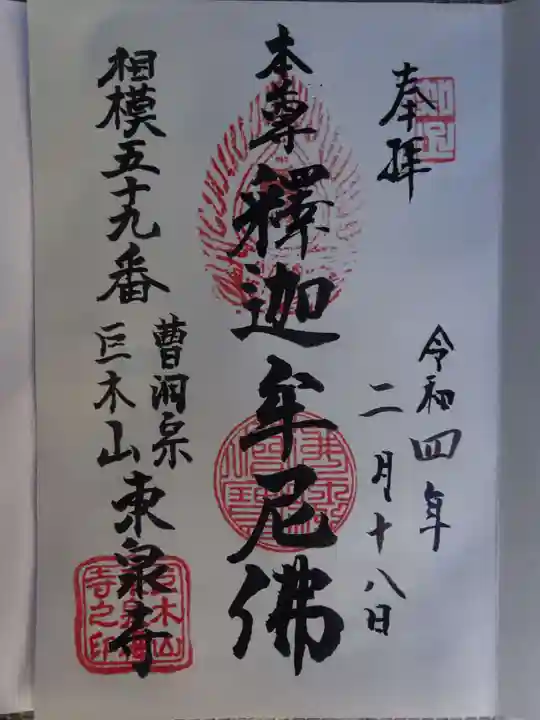 奉拝
令和四年
二月十八日
本尊釋迦牟尼佛
相模五十九番
曹洞宗
巨木山東泉寺
佛法僧寳
巨木山
寺之印